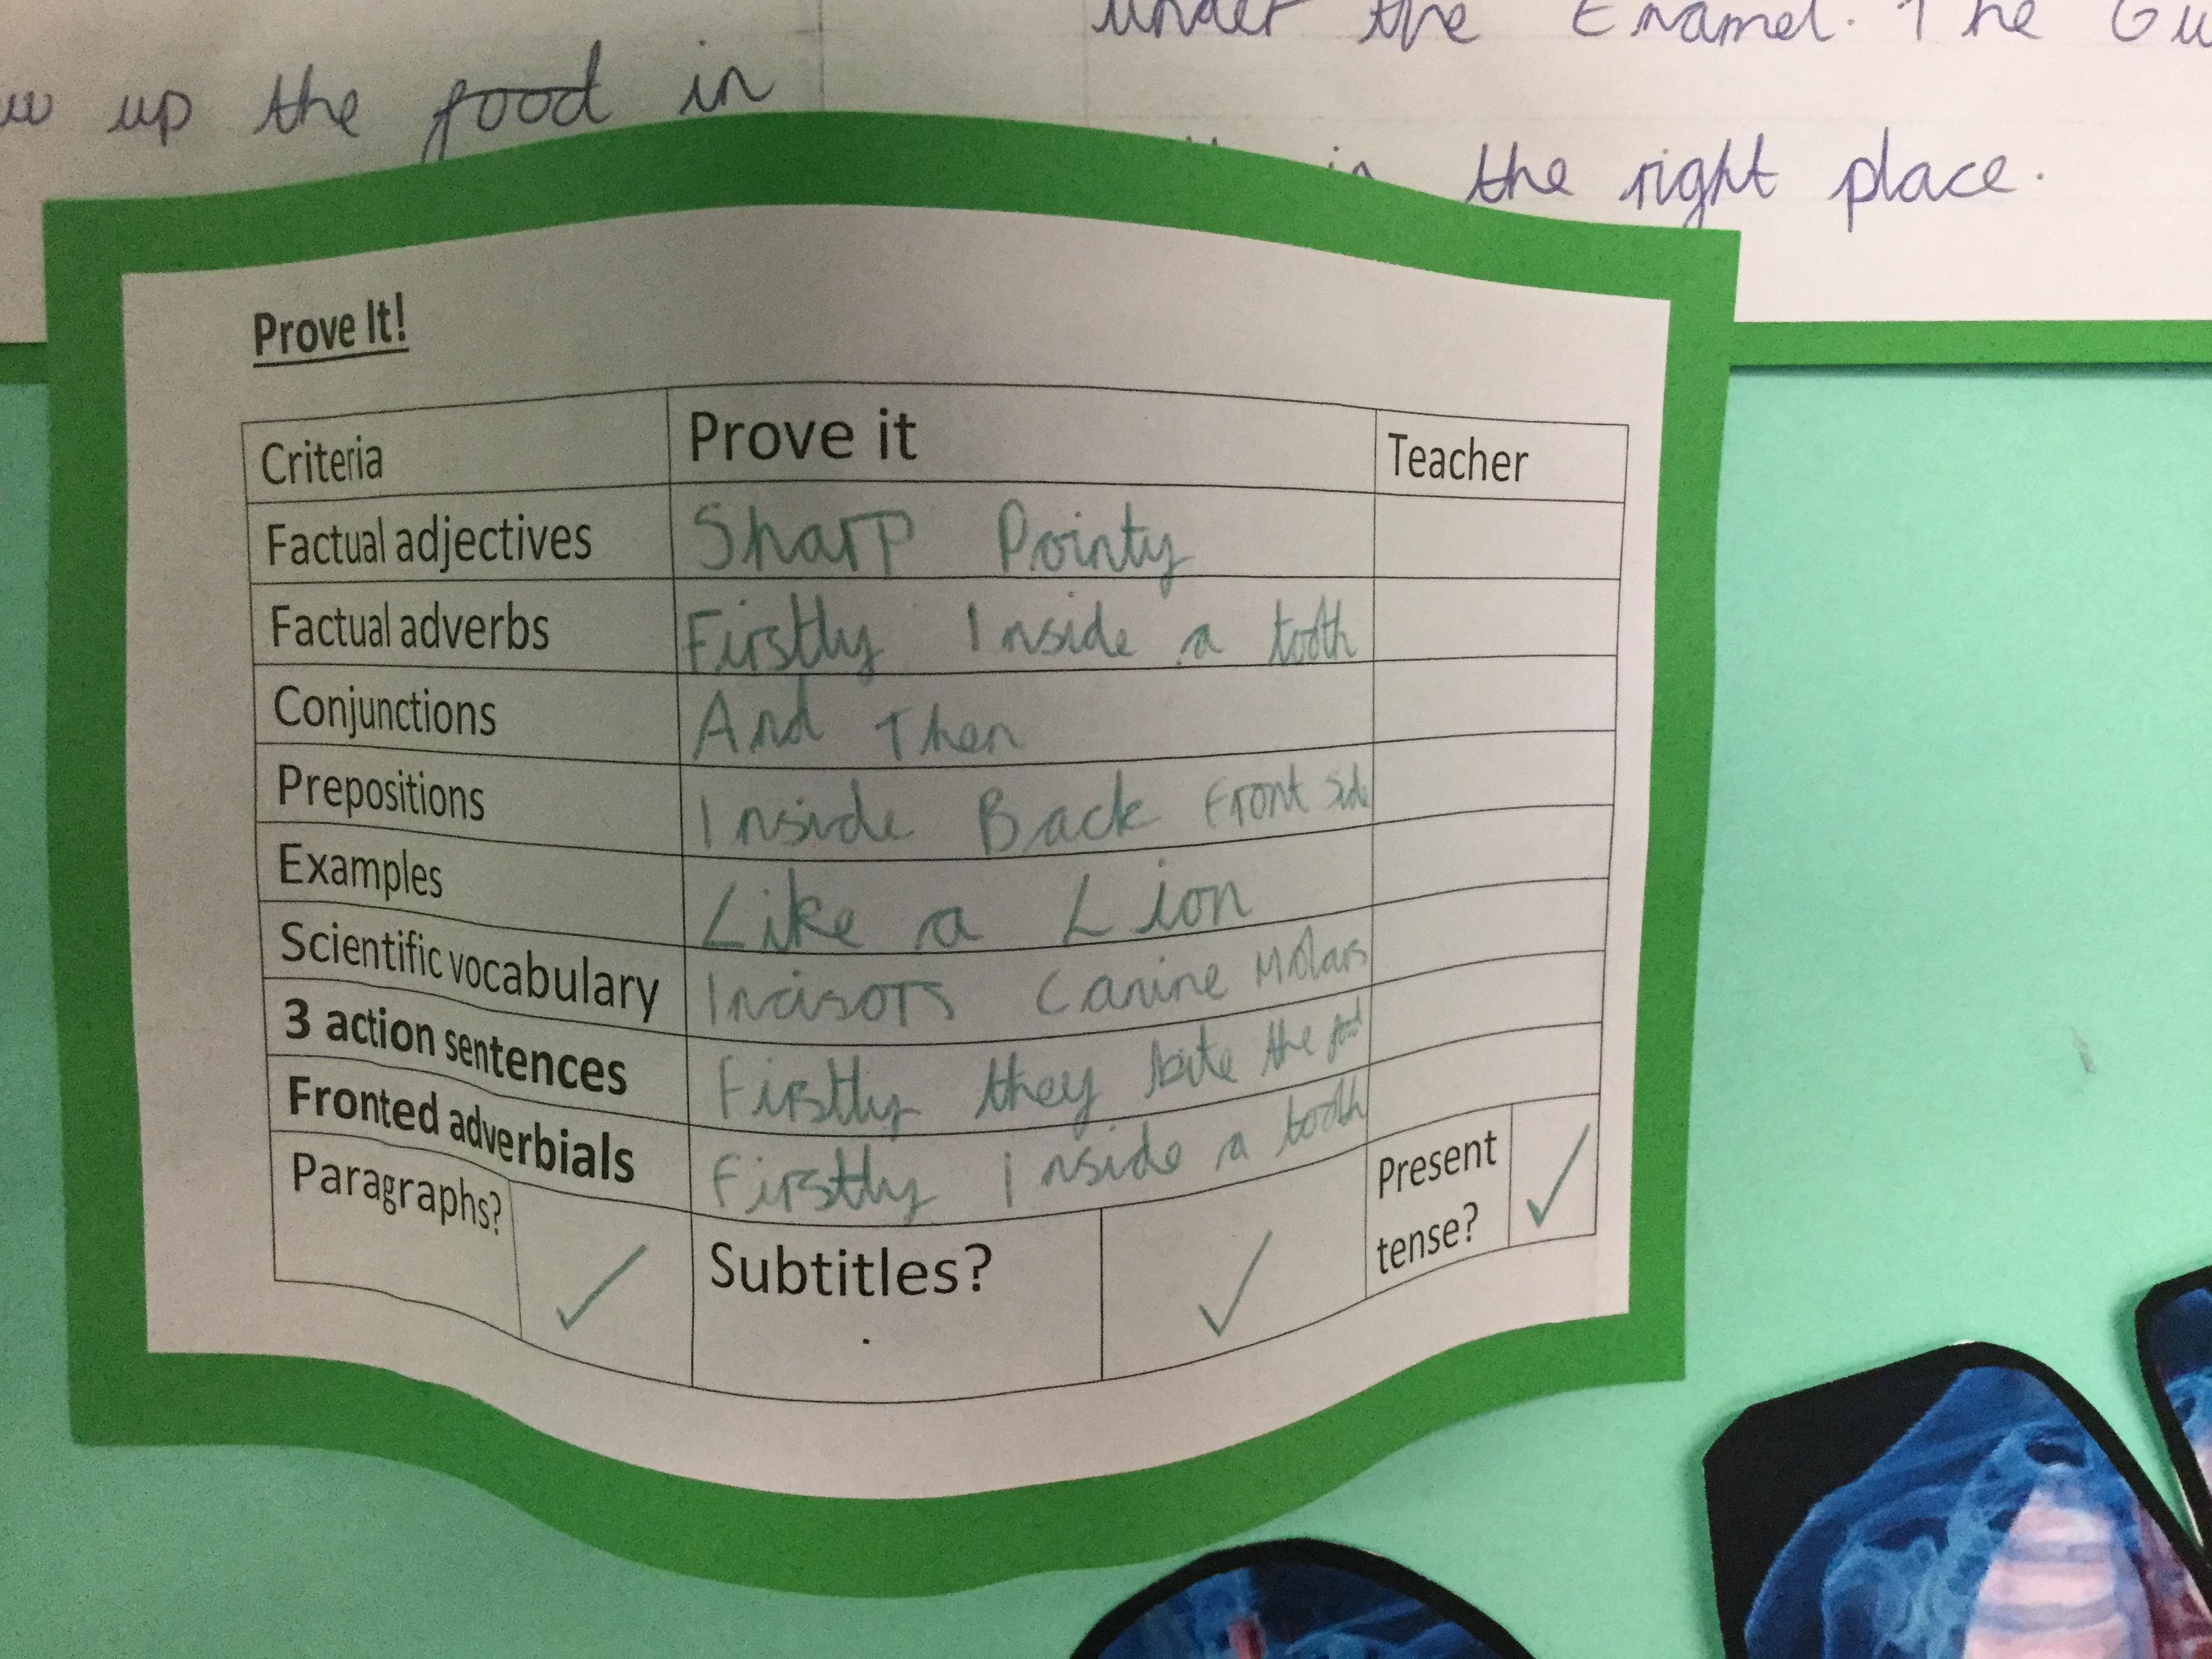 under the Enamel. The Gu
up the food in
in the right place.
Prove It!
Criteria Prove it Teacher
Factual adjectives Sharp Pointy
Factual adverbs Firstly Inside a tooth
Conjunctions And Then
Prepositions Inside Back Front Side
Examples Like a Lion
Scientific vocabulary Incisors Canine Molars
3 action sentences Firstly they bite the food
Fronted adverbials Firstly Inside a tooth
Paragraphs? ✓ Subtitles? ✓ Present tense? ✓